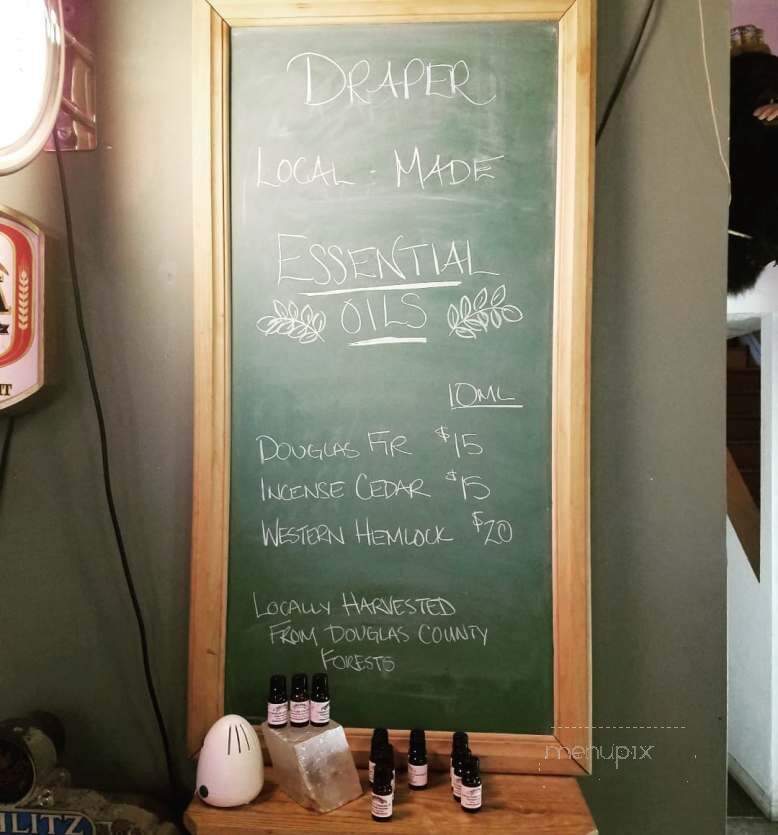 DRAPER
LOCAL - MADE
ESSENTIAL
OILS
10ML
DOUGLAS FIR $15
INCENSE CEDAR $15
WESTERN HEMLOCK $20
LOCALLY HARVESTED
FROM DOUGLAS COUNTY
FORESTS
menupix
LITZ